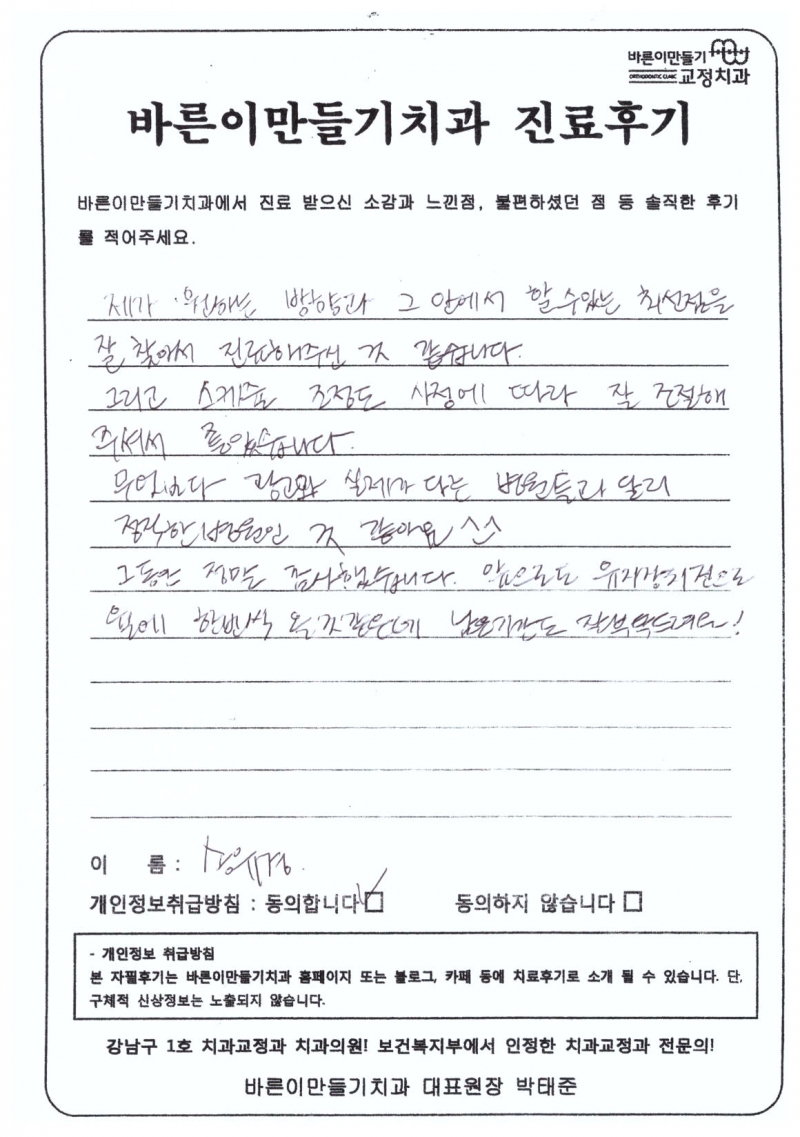 바른이만들기
ORTHODONTIC CLINIC 교정치과
바른이만들기치과 진료후기
바른이만들기치과에서 진료 받으신 소감과 느낀점, 불편하셨던 점 등 솔직한 후기
를 적어주세요.
제가 원하는 방향과 그 안에서 할 수 있는 최선점을
잘 찾아서 진료해주신 것 같습니다.
그리고 스케줄 조정도 사정에 따라 잘 조절해
주셔서 좋았습니다.
무엇보다 광고와 실제가 다른 병원들과 달리
정직한 병원인 것 같아요 ^^
그동안 정말 감사했습니다. 앞으로도 유지장치건으로
한번씩 올 것 같은데 남은기간도 잘부탁드려요!
이 름 :
개인정보취급방침 : 동의합니다 ☑ 동의하지 않습니다 □
- 개인정보 취급방침
본 자필후기는 바른이만들기치과 홈페이지 또는 블로그, 카페 등에 치료후기로 소개 될 수 있습니다. 단,
구체적 신상정보는 노출되지 않습니다.
강남구 1호 치과교정과 치과의원! 보건복지부에서 인정한 치과교정과 전문의!
바른이만들기치과 대표원장 박태준